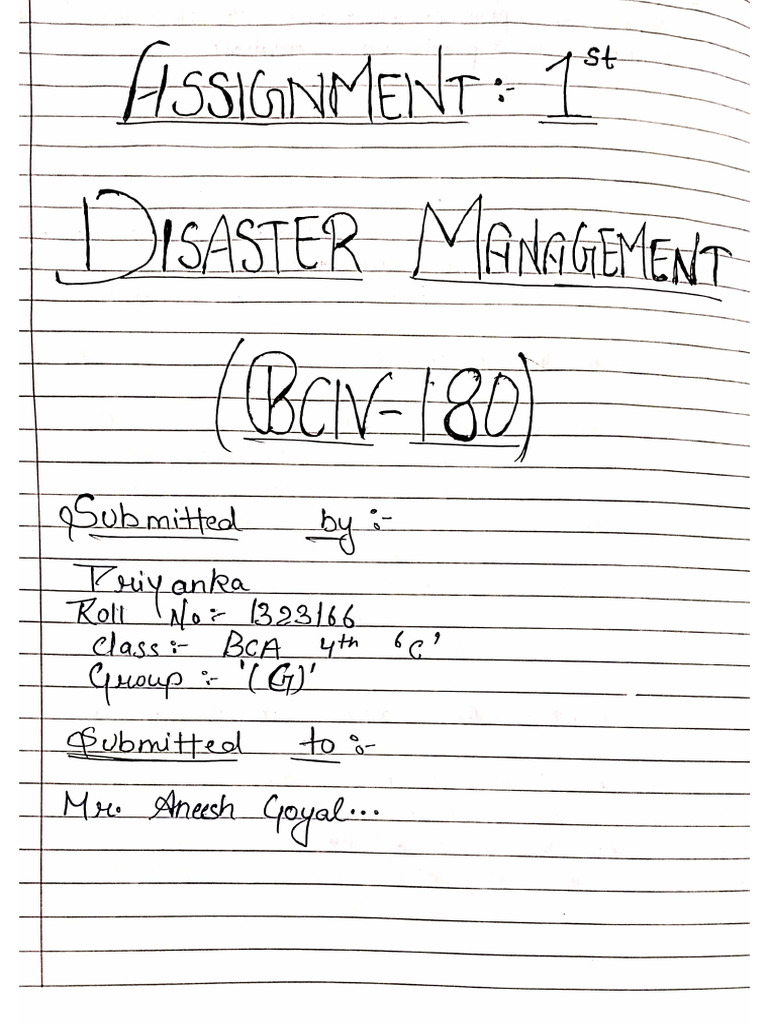 ASSIGNMENT:- 1st
DISASTER MANAGEMENT
(BCIV-180)
Submitted by :-
Priyanka
Roll No:- 1323166
Class:- BCA 4th 'C'
Group :- '(G)'
Submitted to :-
Mr. Aneesh Goyal...